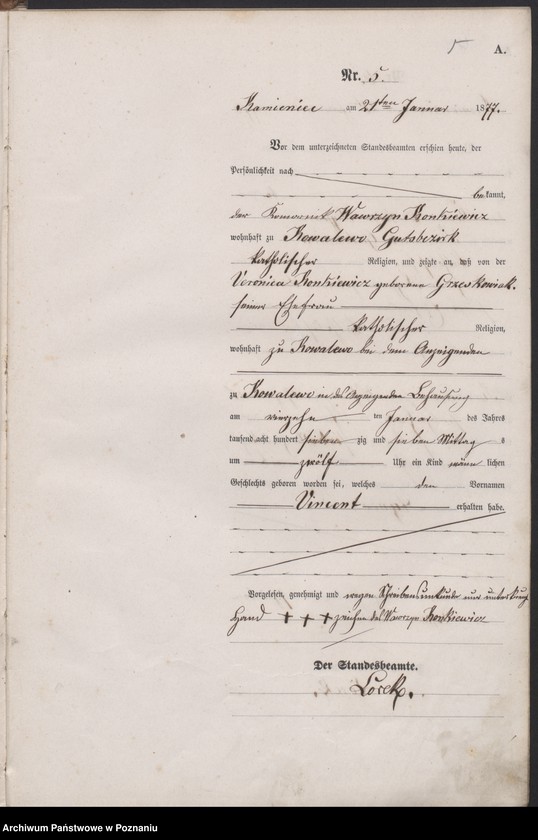 5 A.
Nr. 5.
Kamieniec am 21ten Januar 1877.
Vor dem unterzeichneten Standesbeamten erschien heute, der
Persönlichkeit nach
bekannt,
der Komornik Wawrzyn Konkiewicz
wohnhaft zu Kowalewo Gutsbezirk
katholischer Religion, und zeigte an, daß von der
Veronica Konkiewicz geborene Grzeskowiak
seiner Ehefrau
katholischer Religion,
wohnhaft zu Kowalewo bei dem Anzeigenden
zu Kowalewo in des Anzeigenden Behausung
am vierzehn ten Januar des Jahres
tausend acht hundert sieben zig und sieben Mittag s
um zwölf Uhr ein Kind männ lichen
Geschlechts geboren worden sei, welches den Vornamen
Vincent erhalten habe.
Vorgelesen, genehmigt und wegen Schreibensunkunde mit
Hand +++ zeichen des Wawrzyn Konkiewicz
Der Standesbeamte.
Lorek.
Archiwum Państwowe w Poznaniu